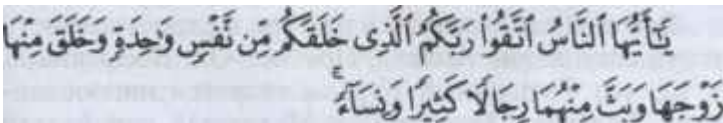 يَـٰٓأَيُّهَا ٱلنَّاسُ ٱتَّقُوا۟ رَبَّكُمُ ٱلَّذِى خَلَقَكُم مِّن نَّفْسٍ وَٰحِدَةٍ وَخَلَقَ مِنْهَا
زَوْجَهَا وَبَثَّ مِنْهُمَا رِجَالًا كَثِيرًا وَنِسَآءً ۚ